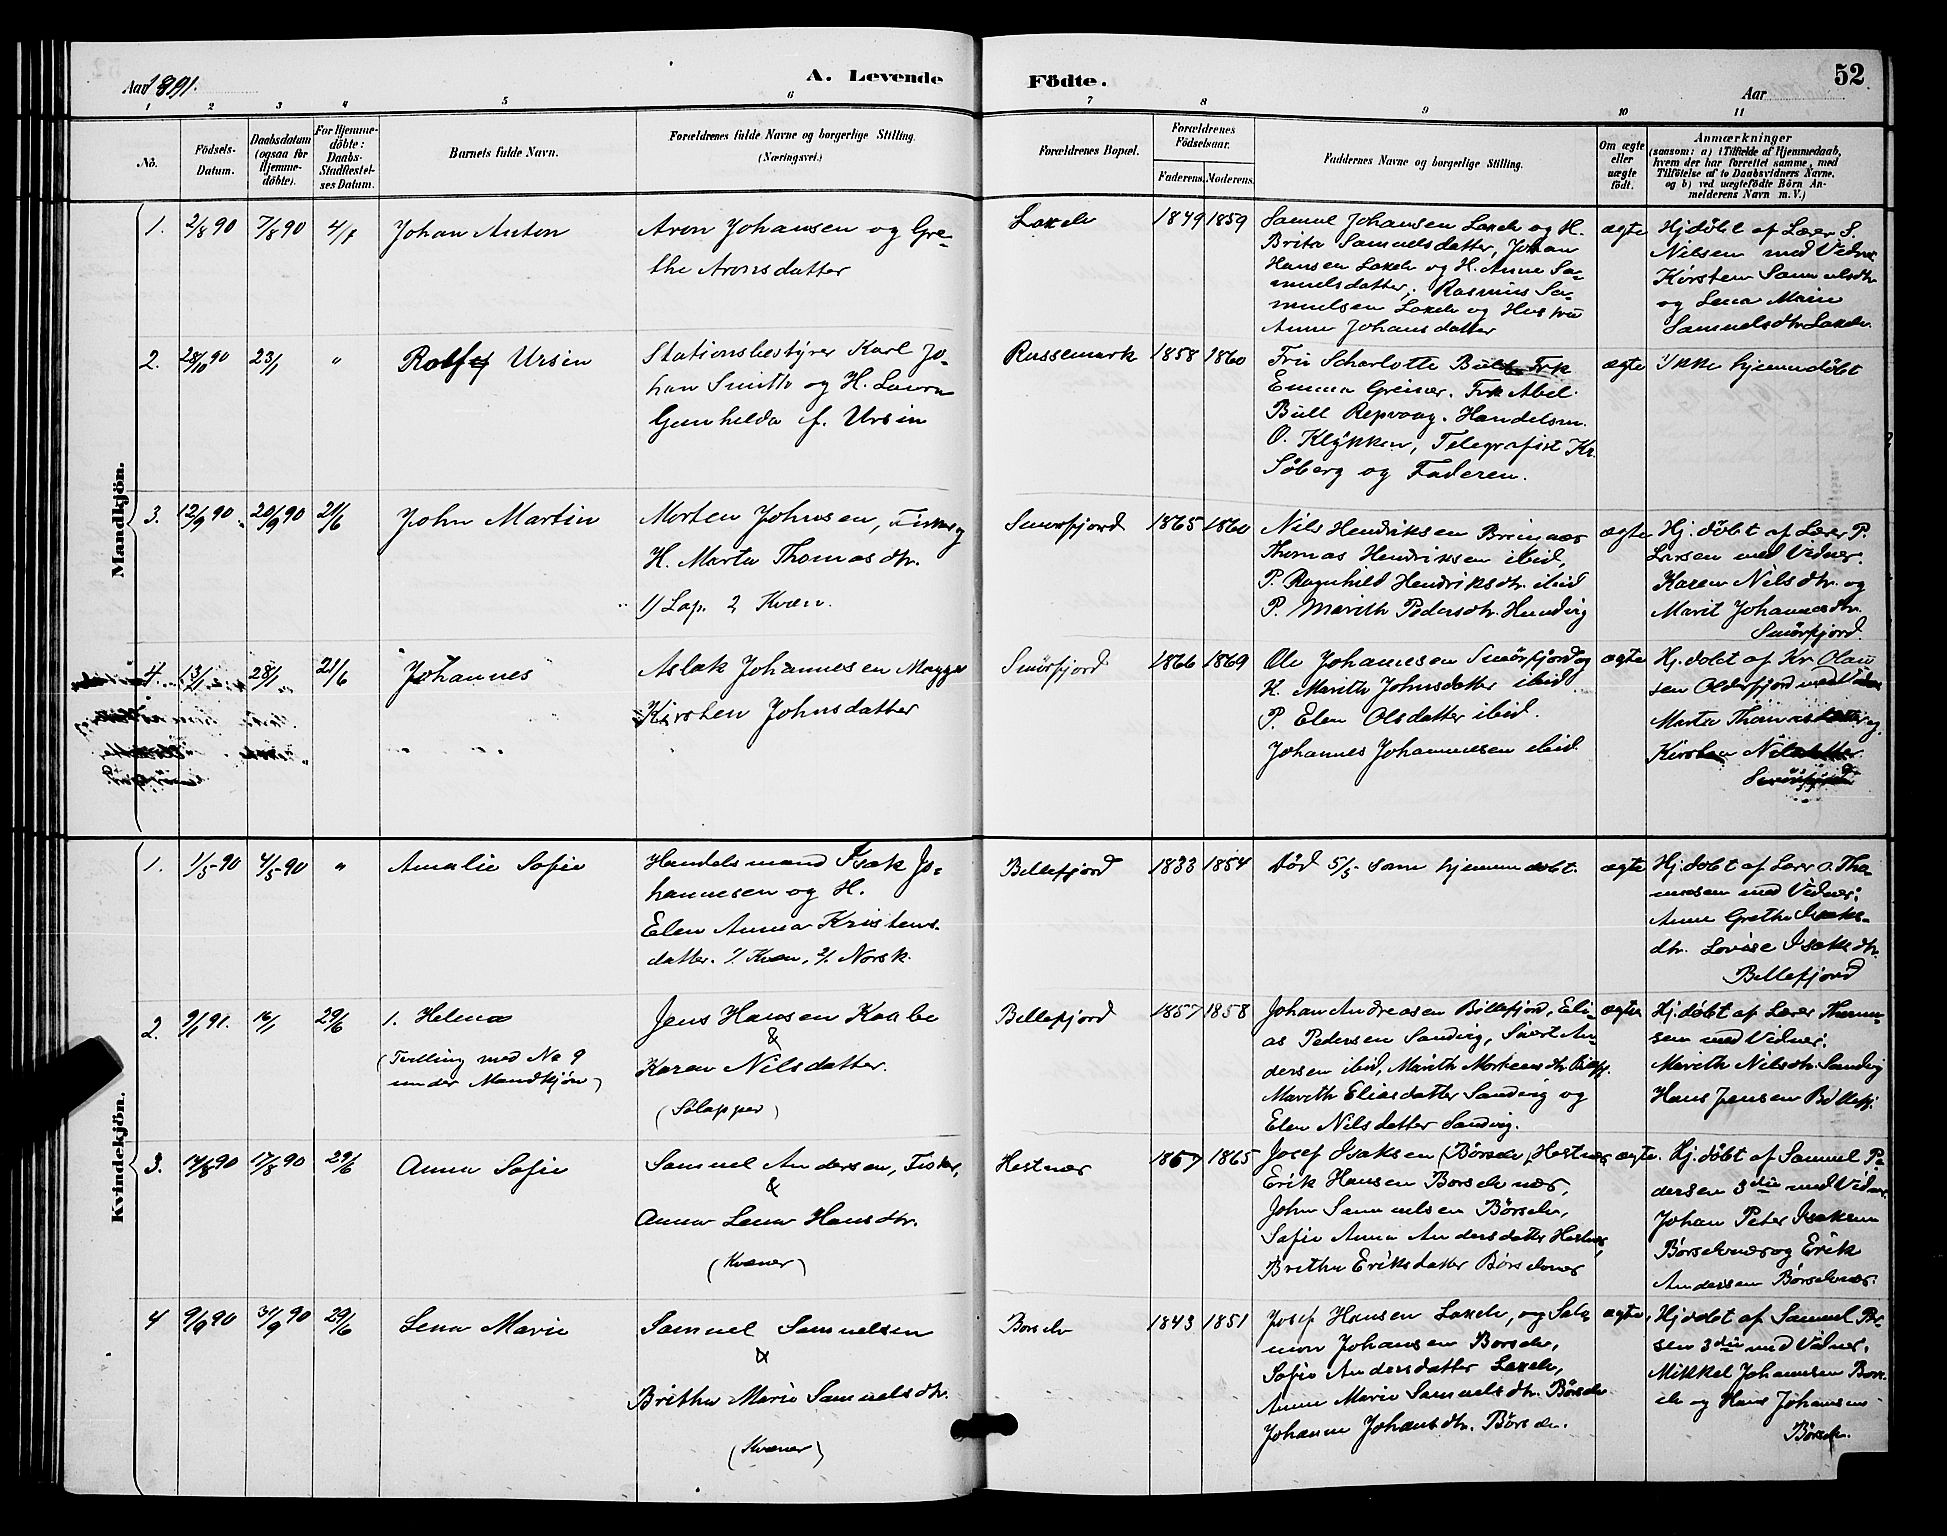 Aar 1891.
A. Levende
Födte.
Aar
52
1 2 3 4 5 6 7 8 9 10 11
No.
Födsels-Datum.
Daabsdatum (ogsaa for Hjemme-döbte).
For Hjemme-döbte: Daabs-Stadfæstel-ses Datum.
Barnets fulde Navn.
Forældrenes fulde Navne og borgerlige Stilling.
(Næringsvei.)
Forældrenes Bopæl.
Forældrenes Födselsaar.
Faderens. Moderens.
Faddernes Navne og borgerlige Stilling.
Om ægte eller uægte födt.
Anmærkninger
(saasom: a) i Tilfælde af Hjemmedaab,
hvem der har forrettet samme, med
Tilföielse af to Daabsvidners Navne,
og b) ved uægtefödte Börn An-
melderens Navn m. V.)
Mandkjön.
1. 2/8 90 7/8 90 4/7 Johan Anton
Aron Johansen og Gre-
the Aronsdatter
Laxelv 1849 1859
Samul Johansen Laxelv og H.
Brita Samuelsdatter, Johan
Hansen Laxelv og H. Anne Sa-
muelsdatter, Rasmus Sa-
muelsen Laxelv og Hustru
Anne Johansdatter
ægte
Hj.döbt af Lærer S.
Nilsen med Vidner
Kirsten Samuelsdtr
og Lena Marie
Samuelsdtr Laxelv.
2. 28/10 90 23/1 " Rolf Ursin
Stationsbestyrer Karl Jo-
han Smith og H. Laura
Gunhelda f. Ursin
Russemark 1858 1860
Fru Scharlotte Bull, Frk
Emma Greiner. Frk Abel
Bull Repvaag. Handelsm.
O. Klykken, Telegrafist Kr.
Söberg og Faderen.
ægte
Ikke hjemmedöbt
3. 12/9 90 20/9 90 21/6 John Martin
Morten Johnsen, Fisker og
H. Marta Thomasdtr.
1) Lap. 2 Kvæn.
Smörfjord 1865 1860
Nils Hendriksen Brenæs
Thomas Hendriksen ibid,
P. Ragnhild Hendriksdtr. ibid
P. Marith Pedersdtr. Hundvig
ægte
Hj. döbt af Lærer P.
Larsen med Vidner.
Karen Nilsdtr. og
Marit Johannesdtr.
Smörfjord
4. 13/1 28/1 21/6 Johannes
Aslak Johannesen Magga
Kirsten Johnsdatter
Smörfjord 1866 1869
Ole Johannesen Smörfjord og
H. Marith Johnsdatter ibid.
P. Elen Olsdatter ibid.
Johannes Johannesen ibid.
ægte
Hj. döbt af Kr. Olau
sen Olderfjord med Vidner
Marta Thomasdatter og
Kirsten Nilsdatter
Smörfjord
Kvindekjön.
1. 1/5-90 4/5-90 " Amalie Sofie
Handelsmand Isak Jo-
hannesen og H.
Elen Anna Kristens-
datter. 1/. Kvæn, 2/. Norsk.
Billefjord 1833 1854
Död 5/5- som hjemmedöbt.
ægte
Hj. döbt af Lærer O. Tho-
mesen med Vidner:
Anne Grethe Isaks-
dtr. Lovise Isaksdtr.
Billefjord
2. 9/1 91. 16/1 29/6 1. Helena
(Tvilling med No 9
under Mandkjön)
Jens Hansen Kaabe
&
Karen Nilsdatter.
(Sölapper)
Billefjord 1857 1858
Johan Andreasen Billefjord, Eli-
as Pedersen Sandvig, Sivert An-
dersen ibid, Marith Mortensdtr Billefj.
Marith Eliasdatter Sandvig og
Elen Nilsdatter Sandvig.
ægte
Hj. döbt af Lærer Thom-
sen med Vidner:
Marith Nilsdtr. Sandvig
Hans Jensen Billefj.
3. 14/8 90 17/8 90 29/6 Anna Sofie
Samuel Andersen, Fisker,
&
Anna Lena Hansdtr.
(Kvæner)
Hestnær 1867 1865
Josef Isaksen (Börselv) Hestnær
Erik Hansen Borselvnær,
John Samuelsen Börselv,
Sofie Anna Andersdatter Hestnær,
Britha Eriksdatter Börselvnær
ægte.
Hj. döbt af Samuel Pe-
dersen 3die med Vidner.
Johan Peter Isaksen
Börselvnær og Erik
Andersen Börselvnær.
4 9/9 90 31/9 90 29/6 Lena Marie
Samuel Samuelsen
&
Britha Marie Samuelsdtr.
(Kvæner)
Borselv 1843 1851
Josef Hansen Laxelv, og Salo-
mon Johansen Borselv,
Sofie Andersdatter Laxelv,
Anne Marie Samuelsdtr. Börselv
Johanne Johansdtr. Börselv.
ægte,
Hj. döbt af Samuel Per-
sen 3die med Vidner.
Mikkel Johannesen Bors-
elv og Hans Johansen
Börselv.